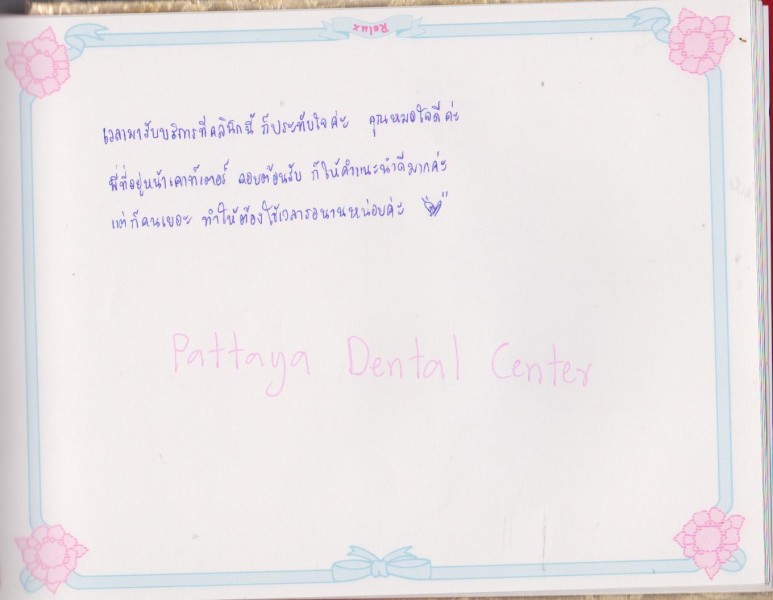 Relux
เวลามารับบริการที่คลินิกนี้ ก็ประทับใจค่ะ คุณหมอใจดีค่ะ
พี่ที่อยู่หน้าเคาท์เตอร์ คอยต้อนรับ ก็ให้คำแนะนำดีมากค่ะ
แต่ก็คนเยอะ ทำให้ต้องใช้เวลารอนานหน่อยค่ะ
Pattaya Dental Center